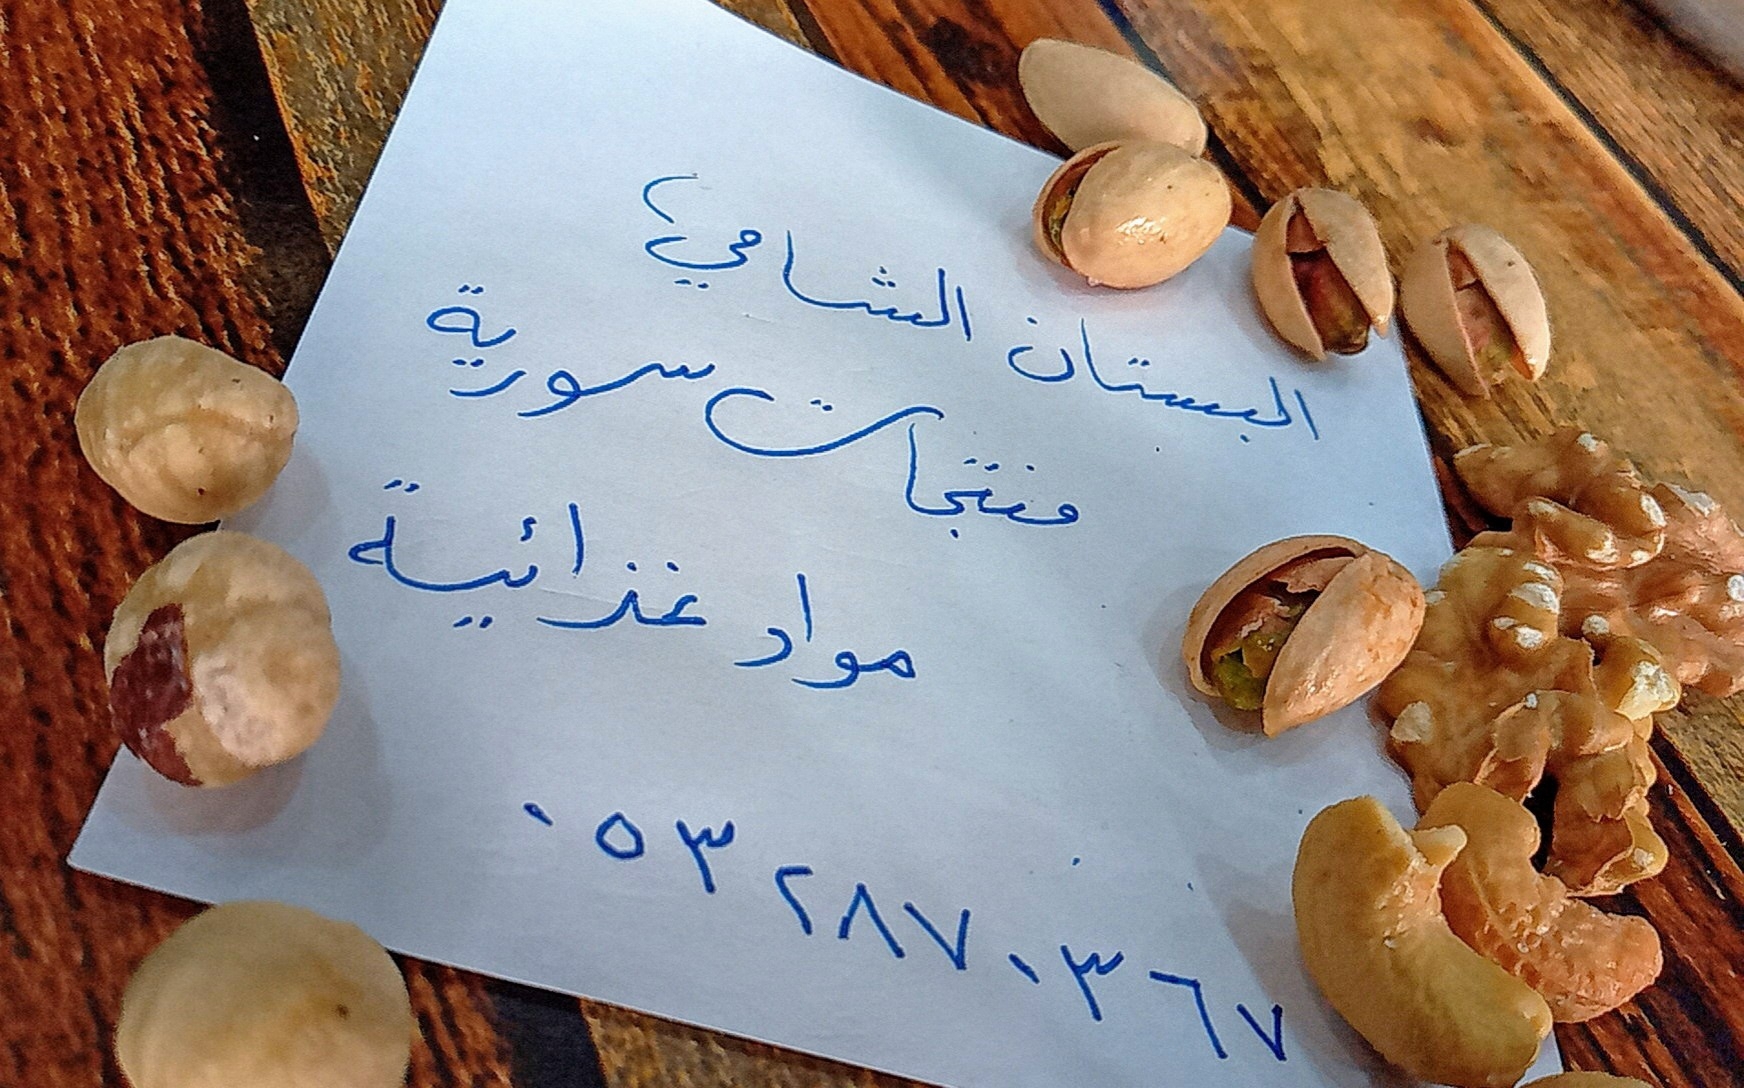 البستان الشامي
منتجات سورية
مواد غذائية
٠٥٣٢٨٧٠٣٦٧